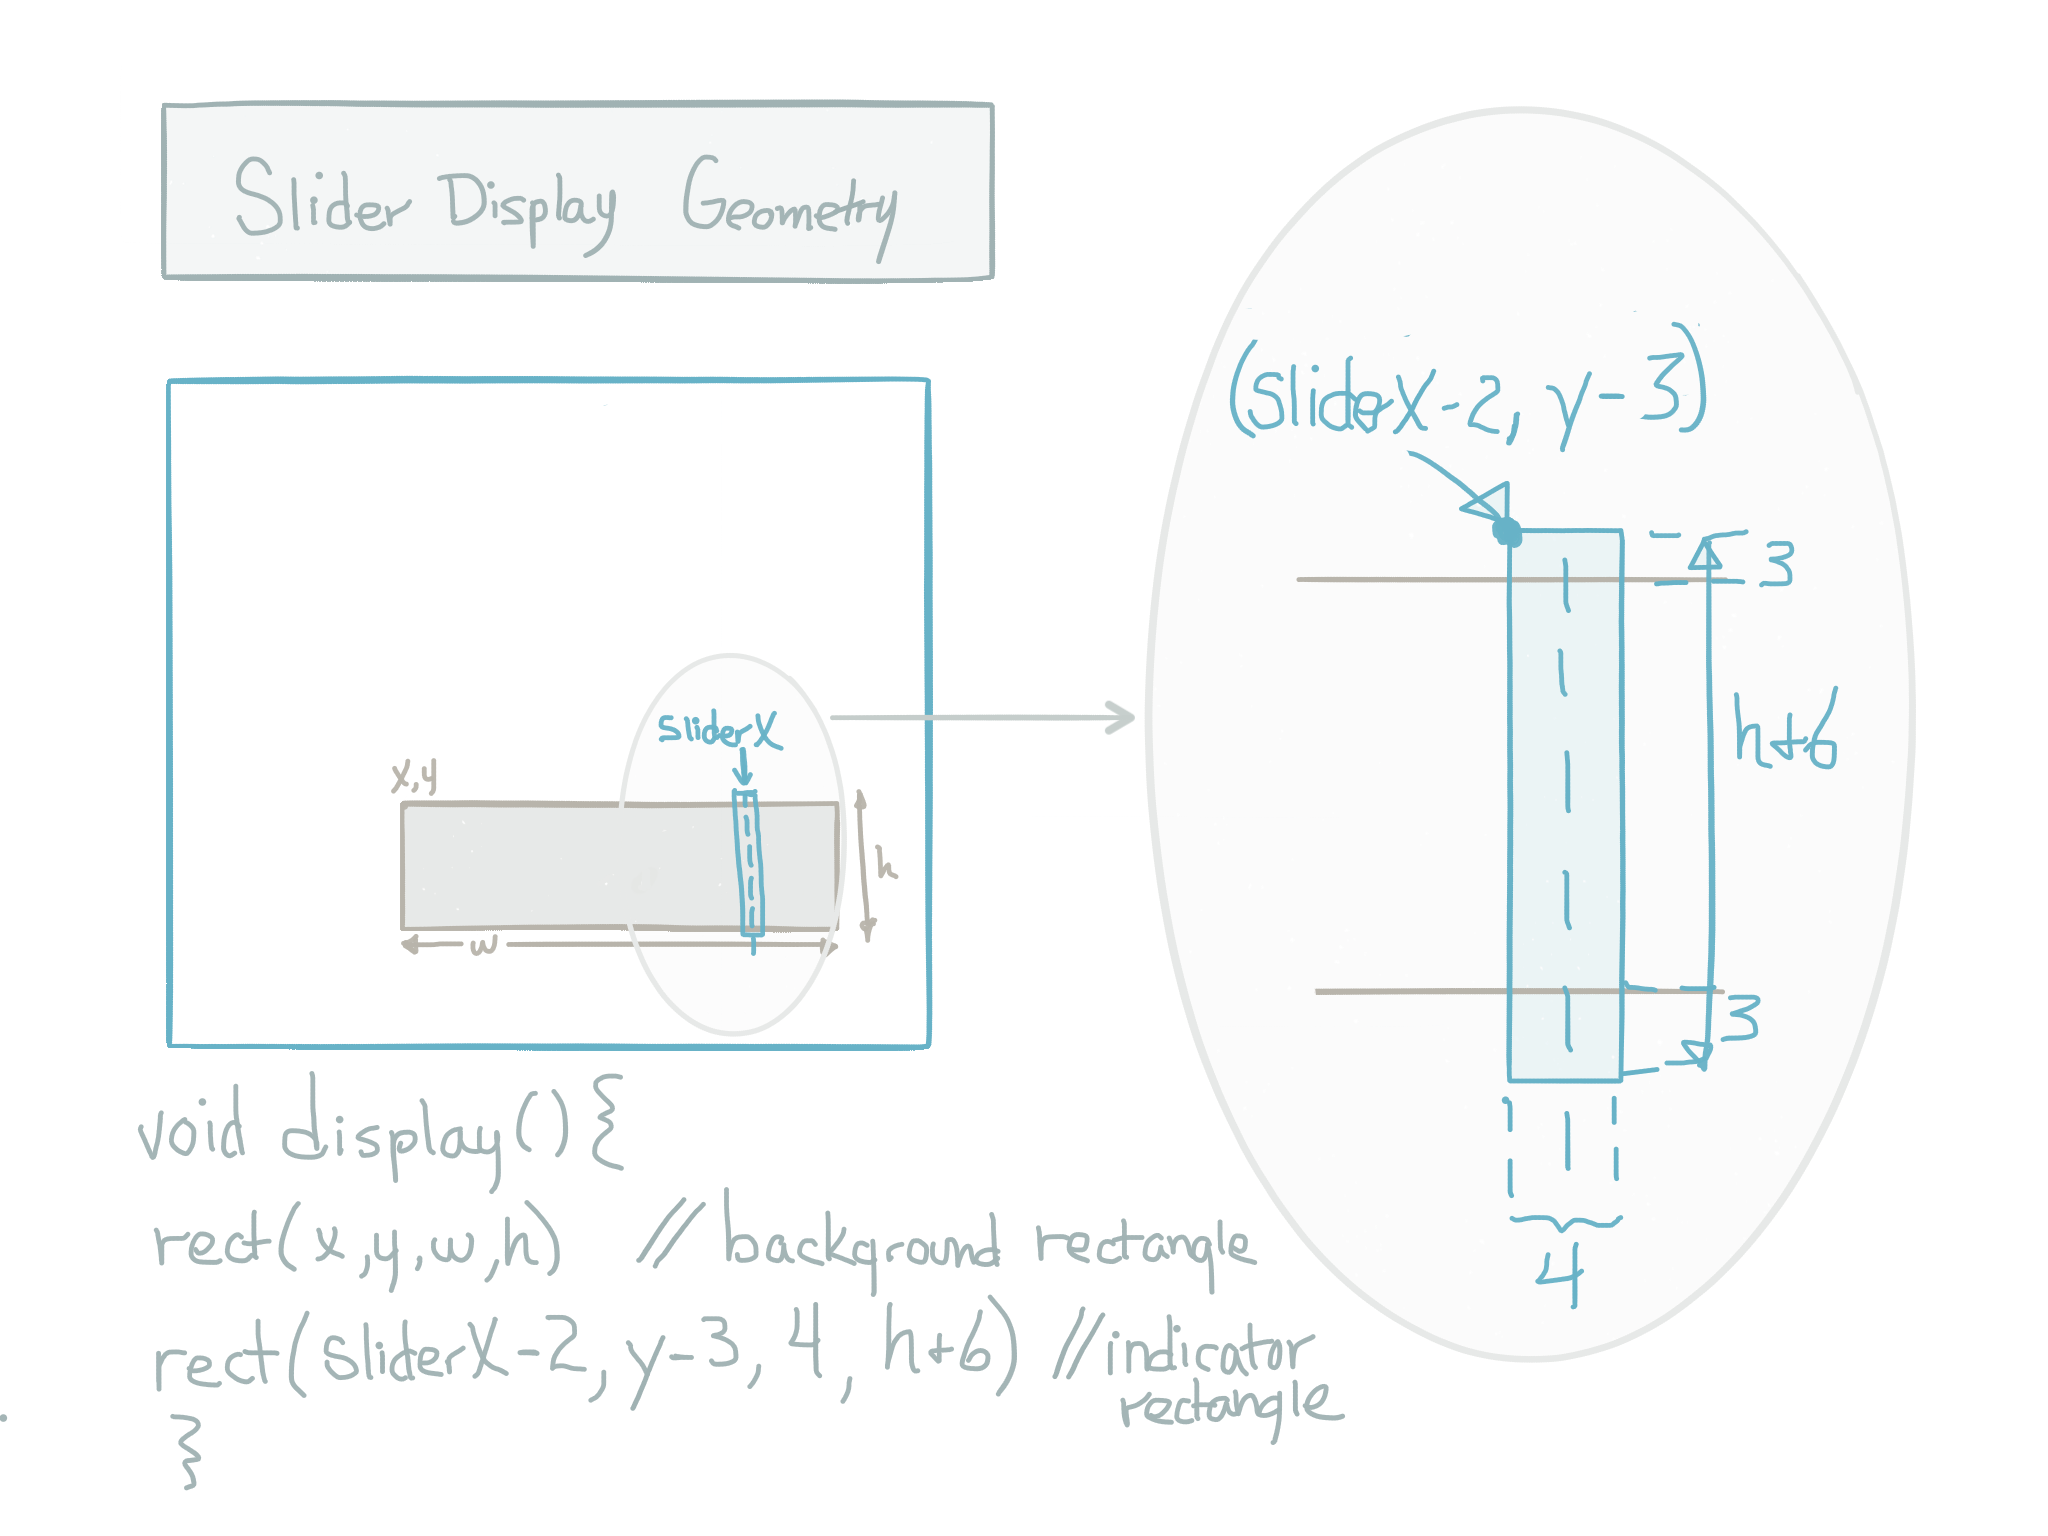 Slider Display Geometry
sliderX
x,y
h
w
(sliderX-2, y-3)
3
h+6
3
4
void display(){
rect(x,y,w,h) // background rectangle
rect(sliderX-2, y-3, 4, h+6) //indicator
rectangle
}